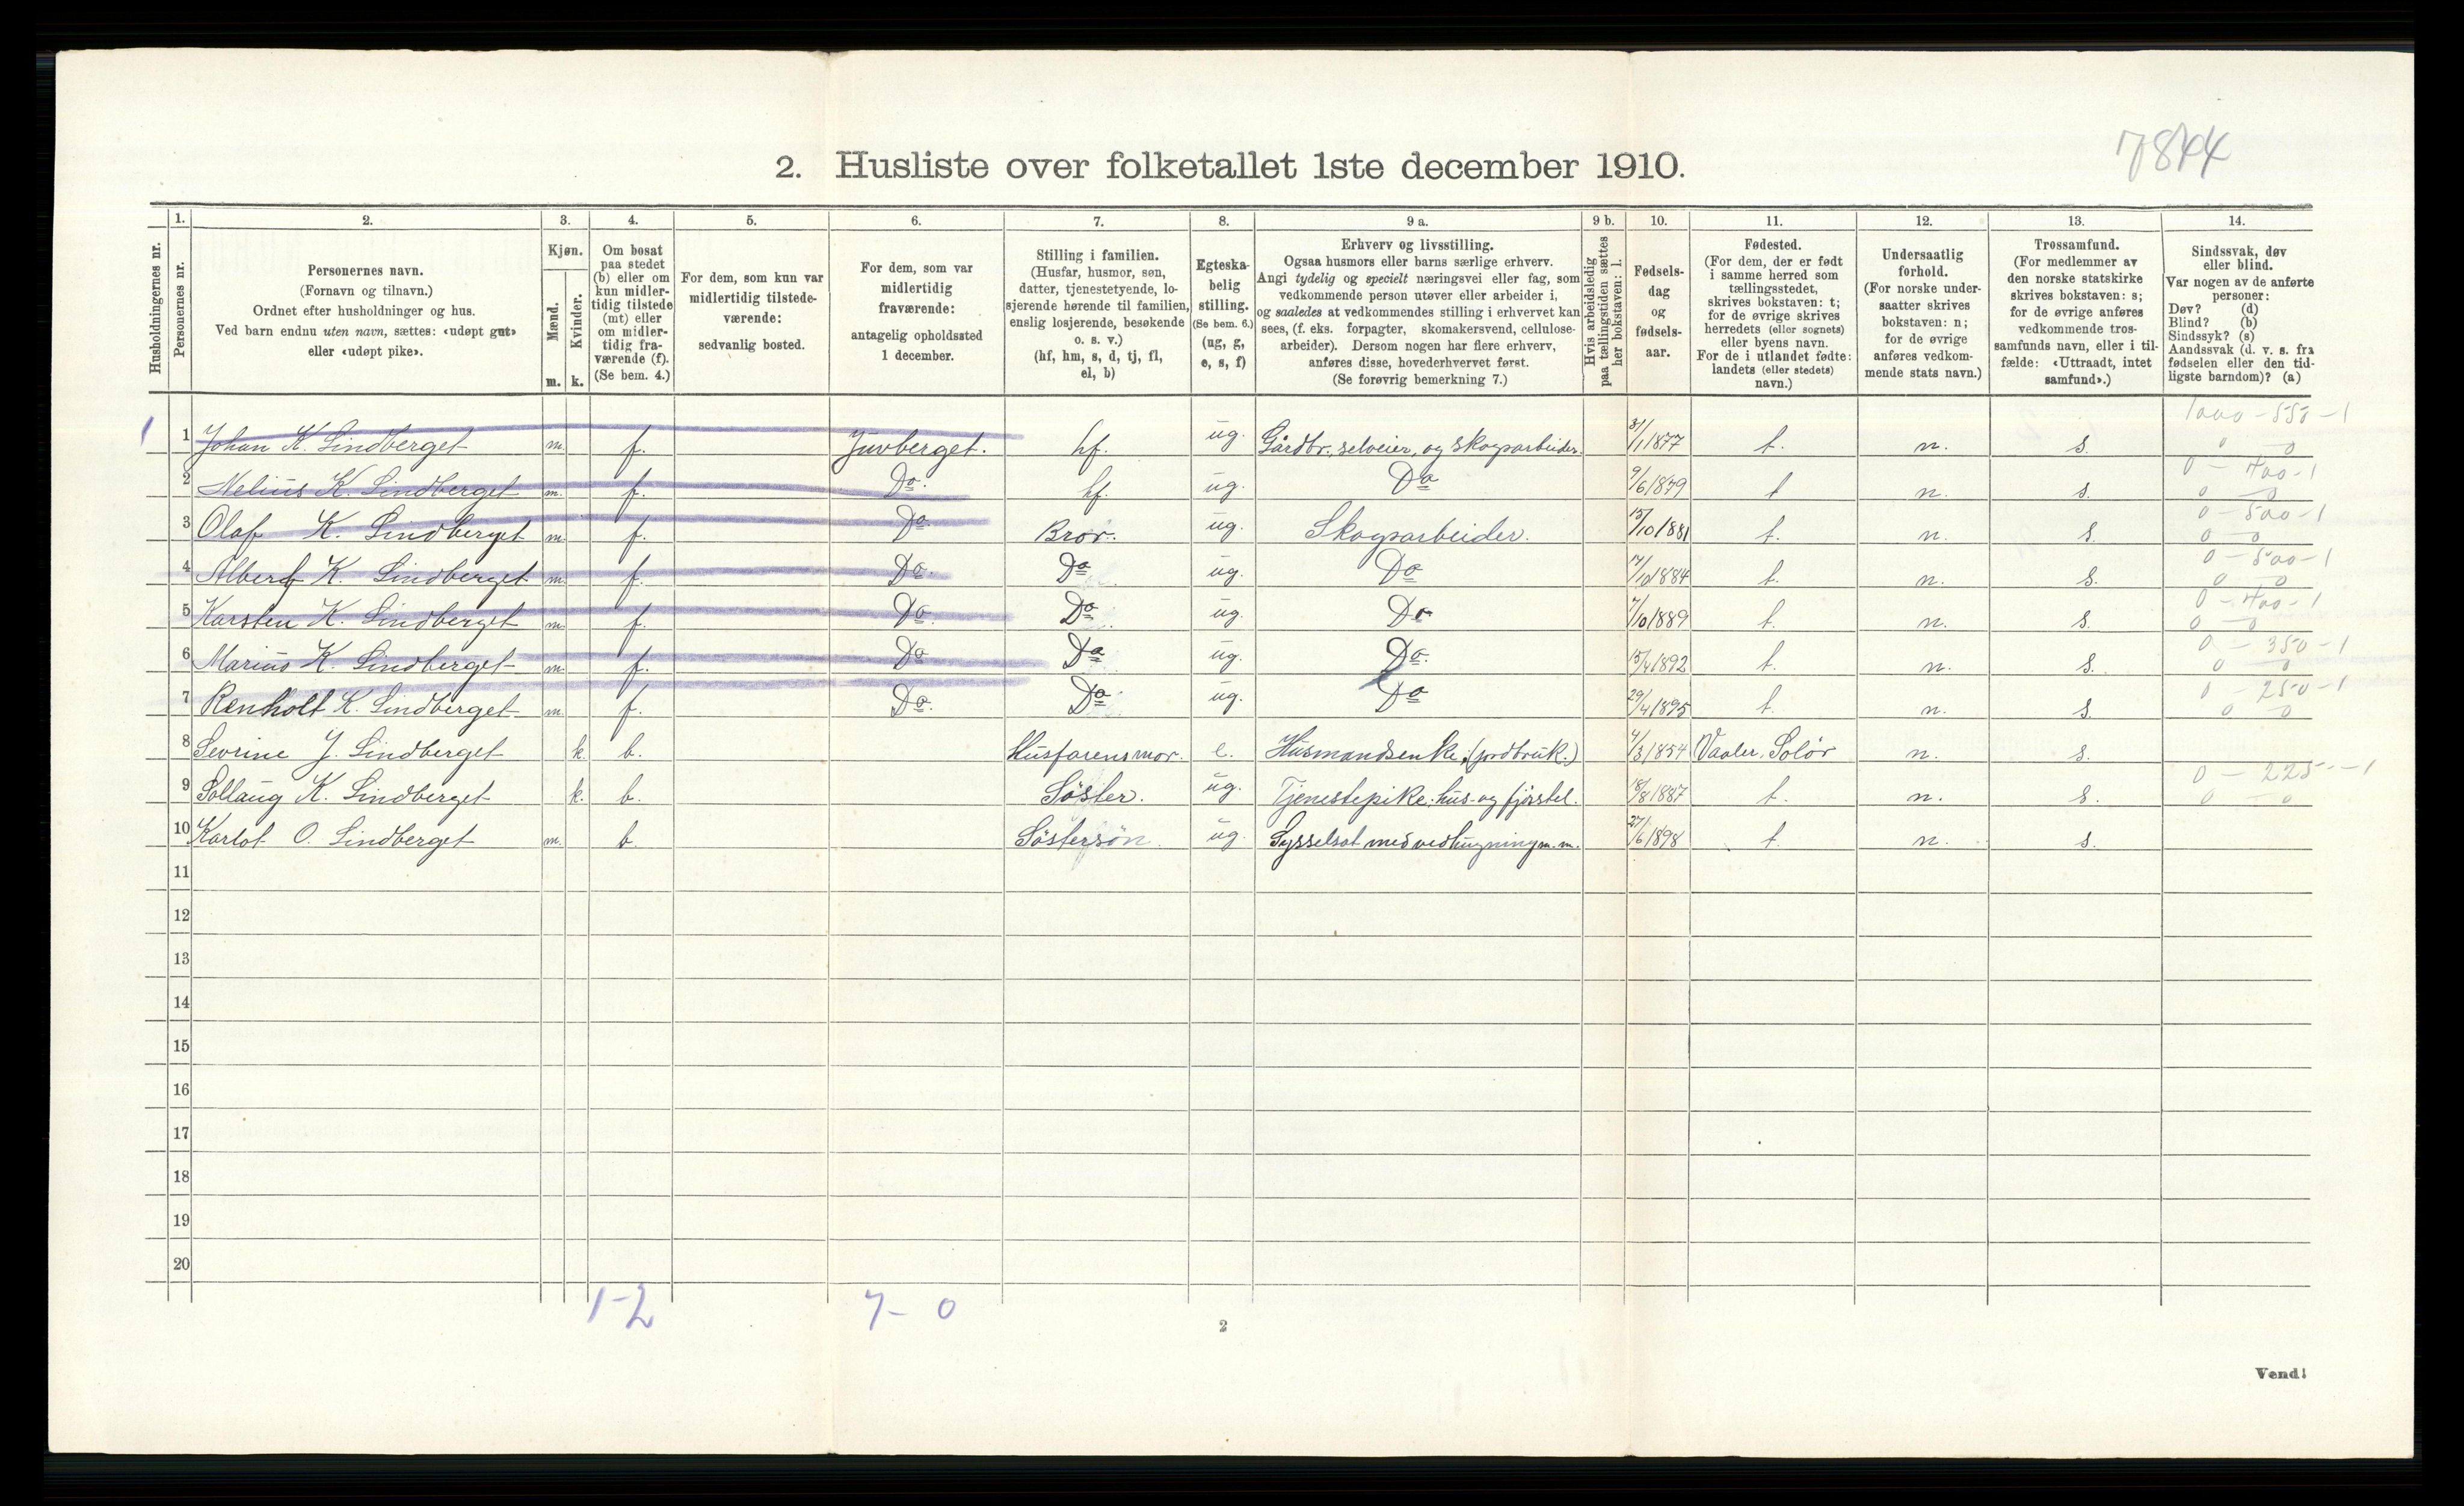 7844
2. Husliste over folketallet 1ste december 1910.
1. 2. 3. 4. 5. 6. 7. 8. 9 a. 9 b. 10. 11. 12. 13. 14.
Husholdningernes nr.
Personernes nr.
Personernes navn.
(Fornavn og tilnavn.)
Ordnet efter husholdninger og hus.
Ved barn endnu uten navn, sættes: «udøpt gut»
eller «udøpt pike».
Kjøn.
Mænd.
Kvinder.
m. k.
Om bosat
paa stedet
(b) eller om
kun midler-
tidig tilstede
(mt) eller
om midler-
tidig fra-
værende (f).
(Se bem. 4.)
For dem, som kun var
midlertidig tilstede-
værende:
sedvanlig bosted.
For dem, som var
midlertidig
fraværende:
antagelig opholdssted
1 december.
Stilling i familien.
(Husfar, husmor, søn,
datter, tjenestetyende, lo-
sjerende hørende til familien,
enslig losjerende, besøkende
o. s. v.)
(hf, hm, s, d, tj, fl,
el, b)
Egteska-
belig
stilling.
(Se bem. 6.)
(ug, g,
e, s, f)
Erhverv og livsstilling.
Ogsaa husmors eller barns særlige erhverv.
Angi tydelig og specielt næringsvei eller fag, som
vedkommende person utøver eller arbeider i,
og saaledes at vedkommendes stilling i erhvervet kan
sees, (f. eks. forpagter, skomakersvend, cellulose-
arbeider). Dersom nogen har flere erhverv,
anføres disse, hovederhvervet først.
(Se forøvrig bemerkning 7.)
Hvis arbeidsledig
paa tællingstiden sættes
her bokstaven: l.
Fødsels-
dag
og
fødsels-
aar.
Fødested.
(For dem, der er født
i samme herred som
tællingsstedet,
skrives bokstaven: t;
for de øvrige skrives
herredets (eller sognets)
eller byens navn.
For de i utlandet fødte:
landets (eller stedets)
navn.)
Undersaatlig
forhold.
(For norske under-
saatter skrives
bokstaven: n;
for de øvrige
anføres vedkom-
mende stats navn.)
Trossamfund.
(For medlemmer av
den norske statskirke
skrives bokstaven: s;
for de øvrige anføres
vedkommende tros-
samfunds navn, eller i til-
fælde: «Uttraadt, intet
samfund».)
Sindssvak, døv
eller blind.
Var nogen av de anførte
personer:
Døv? (d)
Blind? (b)
Sindssyk? (s)
Aandssvak (d. v. s. fra
fødselen eller den tid-
ligste barndom)? (a)
1000 - 550 - 1
1 1 Johan K. Lindberget m. f. Juvberget. hf. ug. Gårdbr., selveier, og skogsarbeider. 31/1 1877 t. n. s. 0 0
0 - 400 - 1
2 Nelius K. Lindberget m. f. Do. hf. ug. Do 9/6 1879 t n. s. 0 - 0
0 - 500 - 1
3 Olaf K. Lindberget m. f. Do. Bror. ug. Skogsarbeider. 15/10 1881 t. n. s. 0 - 0
0 - 500 - 1
4 Albert K. Lindberget m. f. Do. Do ug. Do 17/10 1884 t. n. s. 0 0
0 - 400 - 1
5 Karsten K. Lindberget m. f. Do. Do ug. Do 7/10 1889 t. n. s. 0 - 0
0 - 350 - 1
6 Marius K. Lindberget m. f. Do Do ug. Do. 15/4 1892 t. n. s. 0 0
0 - 250 - 1
7 Renholt K. Lindberget m. f. Do. Do ug. Do 29/4 1895 t. n. s. 0 0
8 Sevrine J. Lindberget k. b. Husfarens mor. e. Husmandsenke. (jordbruk.) 4/3 1854 Vaaler, Solör n. s.
0 - 225 - 1
9 Sollaug K. Lindberget k. b. Söster. ug. Tjenestepike: hus- og fjösstel. 18/8 1887 t. n. s. 0 - 0
10 Karlot O. Lindberget m. b Söstersön. ug. Sysselsat med vedhugning m. m. 27/6 1898 t. n. s.
11
12
13
14
15
16
17
18
19
20
1-2 7- 0
2
Vend!